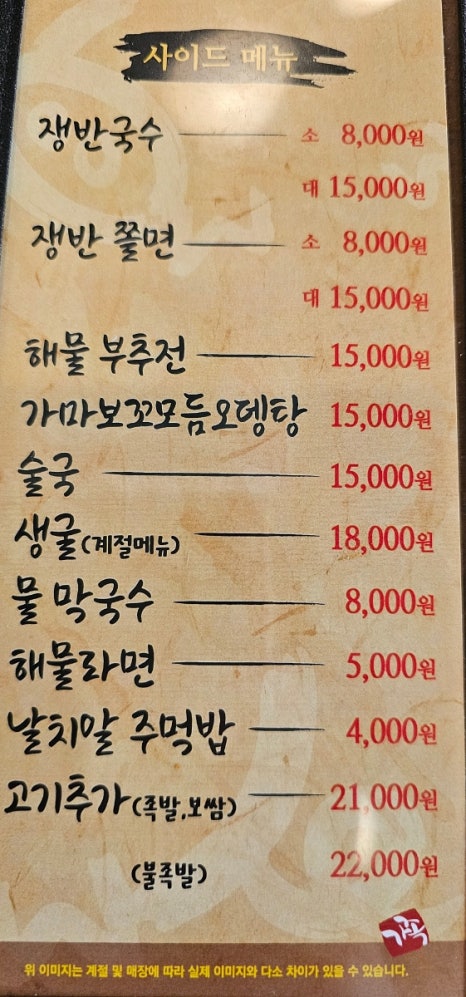 사이드 메뉴
쟁반국수 소 8,000원
대 15,000원
쟁반 쫄면 소 8,000원
대 15,000원
해물 부추전 15,000원
가마보꼬모듬오뎅탕 15,000원
술국 15,000원
생굴(계절메뉴) 18,000원
물 막국수 8,000원
해물라면 5,000원
날치알 주먹밥 4,000원
고기추가(족발,보쌈) 21,000원
(불족발) 22,000원
가족
위 이미지는 계절 및 매장에 따라 실제 이미지와 다소 차이가 있을 수 있습니다.